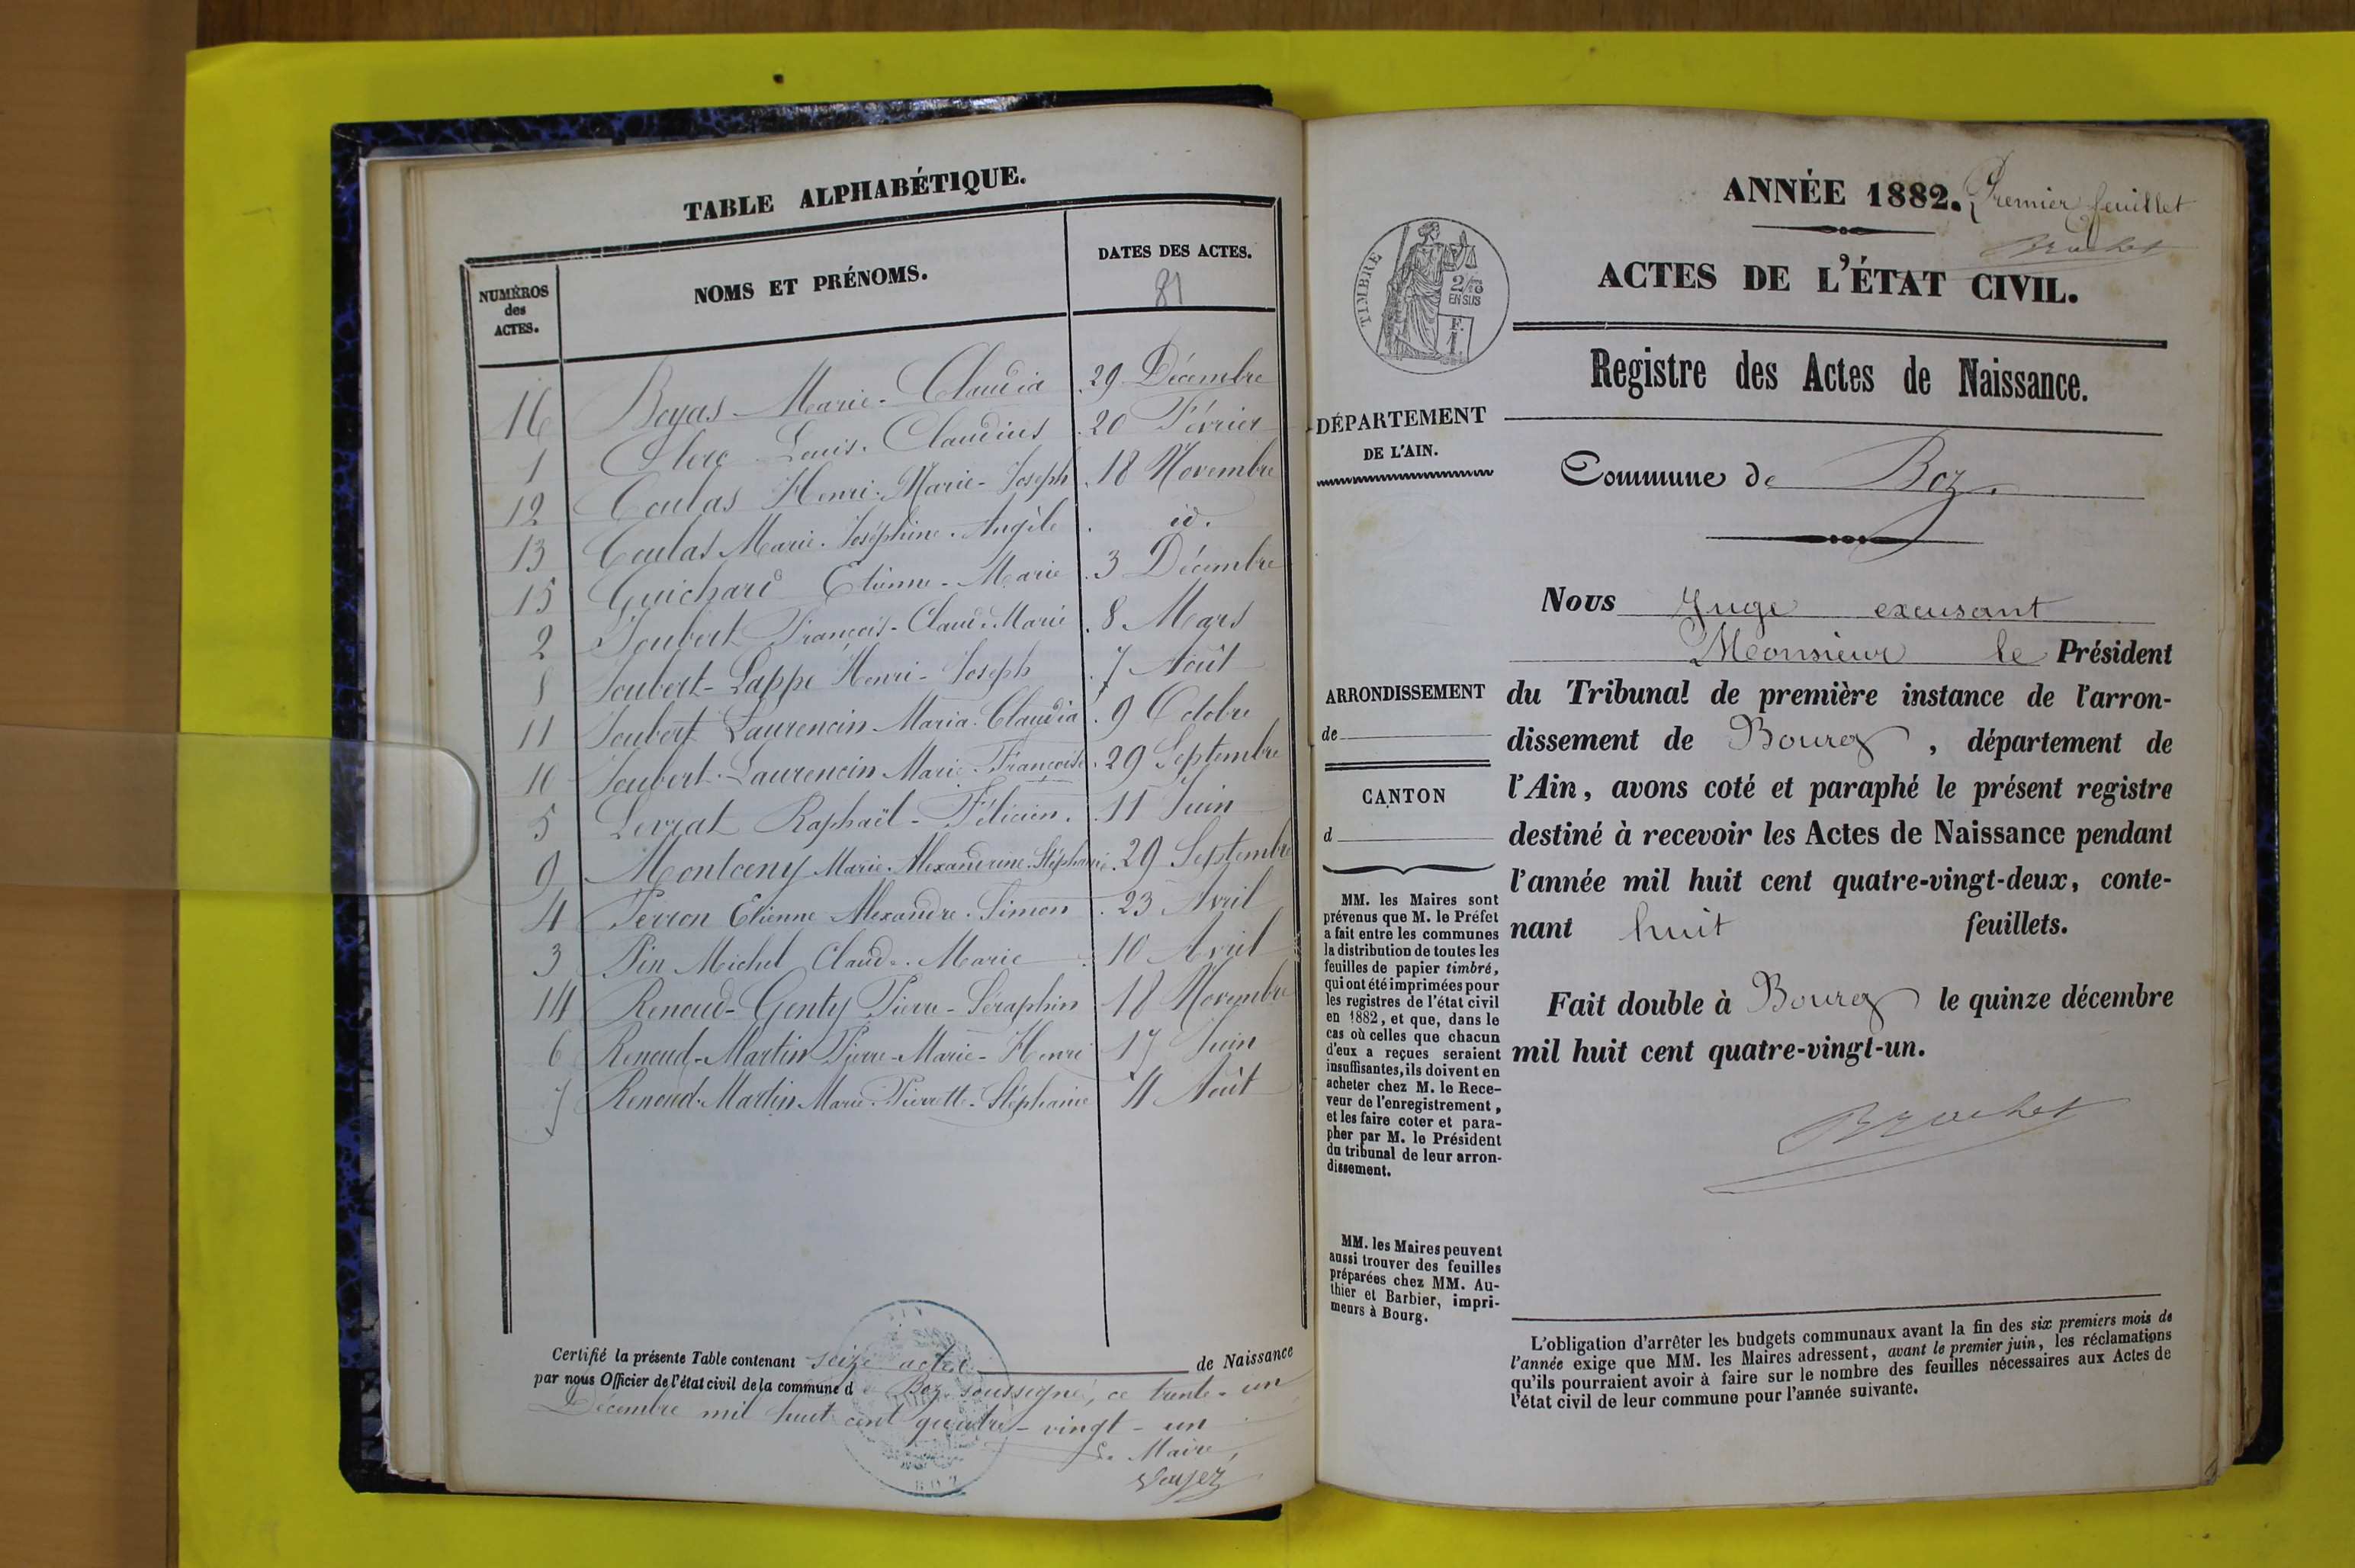 TABLE ALPHABÉTIQUE.
NUMÉROS
des
ACTES.
NOMS ET PRÉNOMS.
DATES DES ACTES.
81
16 Boyas Marie-Claudia 29 Décembre
1 Clerc Louis-Claudius 20 Février
12 Coulas Henri-Marie-Joseph 18 Novembre
13 Coulas Marie-Joséphine-Angèle id.
15 Guichard Etienne-Marie 3 Décembre
2 Joubert François-Claude-Marie 8 Mars
8 Joubert-Lappe Henri-Joseph 7 Août
11 Joubert Laurencin Maria-Claudia 9 Octobre
10 Joubert-Laurencin Marie-Françoise 29 Septembre
5 Levrat Raphaël-Félicien. 11 Juin
9 Montceny Marie-Alexandrine-Stéphanie 29 Septembre
4 Perron Etienne Alexandre-Simon 23 Avril
3 Pin Michel Claude-Marie 10 Avril
14 Renoud-Genty Pierre-Séraphin 18 Novembre
6 Renoud-Martin Pierre-Marie-Henri 17 Juin
7 Renoud-Martin Marie-Pierrette-Stéphanie 4 Août
Certifié la présente Table contenant seize actes de Naissance
par nous Officier de l'état civil de la commune d e Boz soussigné, ce trente-un
Décembre mil huit cent quatre-vingt-un
Le Maire,
ANNÉE 1882.
Premier feuillet
Brochet
ACTES DE L'ÉTAT CIVIL.
TIMBRE
2/10
EN SUS
F.
1
Registre des Actes de Naissance.
DÉPARTEMENT
DE L'AIN.
Commune de Boz.
Nous Juge excusant
Monsieur le Président
du Tribunal de première instance de l'arron-
dissement de Bourg, département de
l'Ain, avons coté et paraphé le présent registre
destiné à recevoir les Actes de Naissance pendant
l'année mil huit cent quatre-vingt-deux, conte-
nant huit feuillets.
Fait double à Bourg le quinze décembre
mil huit cent quatre-vingt-un.
Brochet
ARRONDISSEMENT
de
CANTON
d
MM. les Maires sont
prévenus que M. le Préfet
a fait entre les communes
la distribution de toutes les
feuilles de papier timbré,
qui ont été imprimées pour
les registres de l'état civil
en 1882, et que, dans le
cas où celles que chacun
d'eux a reçues seraient
insuffisantes, ils doivent en
acheter chez M. le Rece-
veur de l'enregistrement,
et les faire coter et para-
pher par M. le Président
du tribunal de leur arron-
dissement.
MM. les Maires peuvent
aussi trouver des feuilles
préparées chez MM. Au-
thier et Barbier, impri-
meurs à Bourg.
L'obligation d'arrêter les budgets communaux avant la fin des six premiers mois de
l'année exige que MM. les Maires adressent, avant le premier juin, les réclamations
qu'ils pourraient avoir à faire sur le nombre des feuilles nécessaires aux Actes de
l'état civil de leur commune pour l'année suivante.